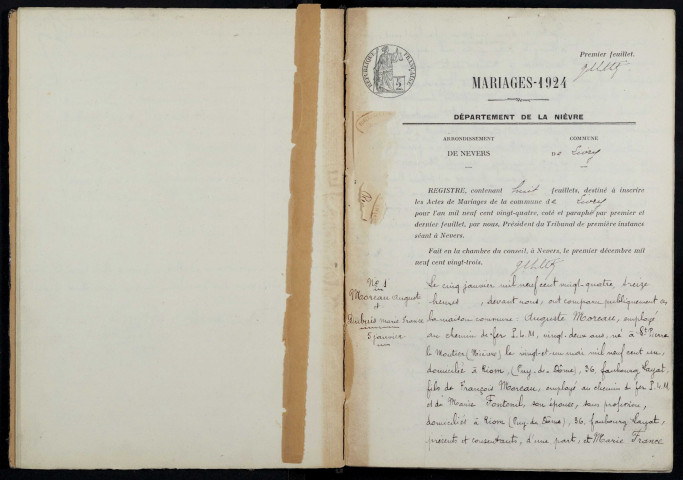 Premier feuillet.
RÉPUBLIQUE FRANÇAISE
2
MARIAGES-1924
DÉPARTEMENT DE LA NIÈVRE
ARRONDISSEMENT
DE NEVERS
COMMUNE
DE Livry
REGISTRE, contenant huit feuillets, destiné à inscrire
les Actes de Mariages de la commune de Livry
pour l'an mil neuf cent vingt-quatre, coté et paraphé par premier et
dernier feuillet, par nous, Président du Tribunal de première instance
séant à Nevers.
Fait en la chambre du conseil, à Nevers, le premier décembre mil
neuf cent vingt-trois.
No 1
Moreau Auguste
et
Marie France
5 janvier
Le cinq janvier mil neuf cent vingt-quatre, à seize
heures, devant nous, ont comparu publiquement en
la maison commune : Auguste Moreau, employé
au chemin de fer P.L.M, vingt-deux ans, né à St Pierre
le Moutier (Nièvre) le vingt-et-un mai mil neuf cent un,
domicilié à Riom, (Puy-de-Dôme), 36, faubourg Layat,
fils de François Moreau, employé au chemin de fer P.L.M
et de Marie Fonteuil, son épouse, sans profession,
domiciliés à Riom (Puy de Dôme), 36, faubourg Layat,
présents et consentants, d'une part, et Marie France